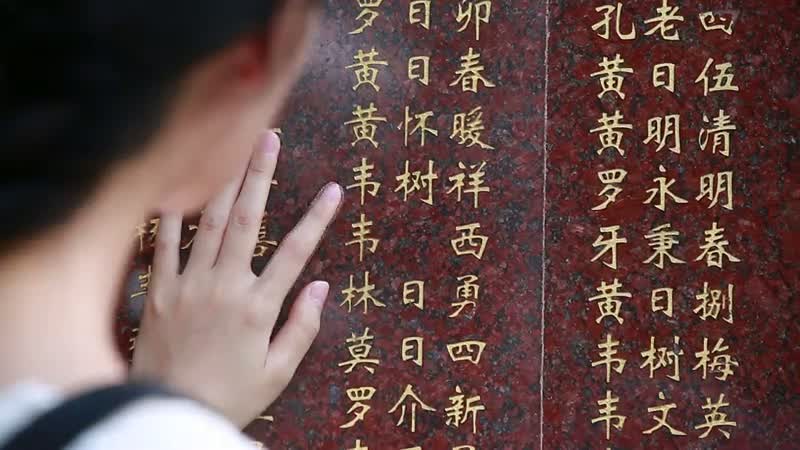 喜
罗日卯
黄日春
黄怀暖
韦树祥
韦 西
林日勇
莫日四
罗介新
孔老四
黄日伍
黄明清
罗永明
牙秉春
黄日捌
韦树梅
韦文英